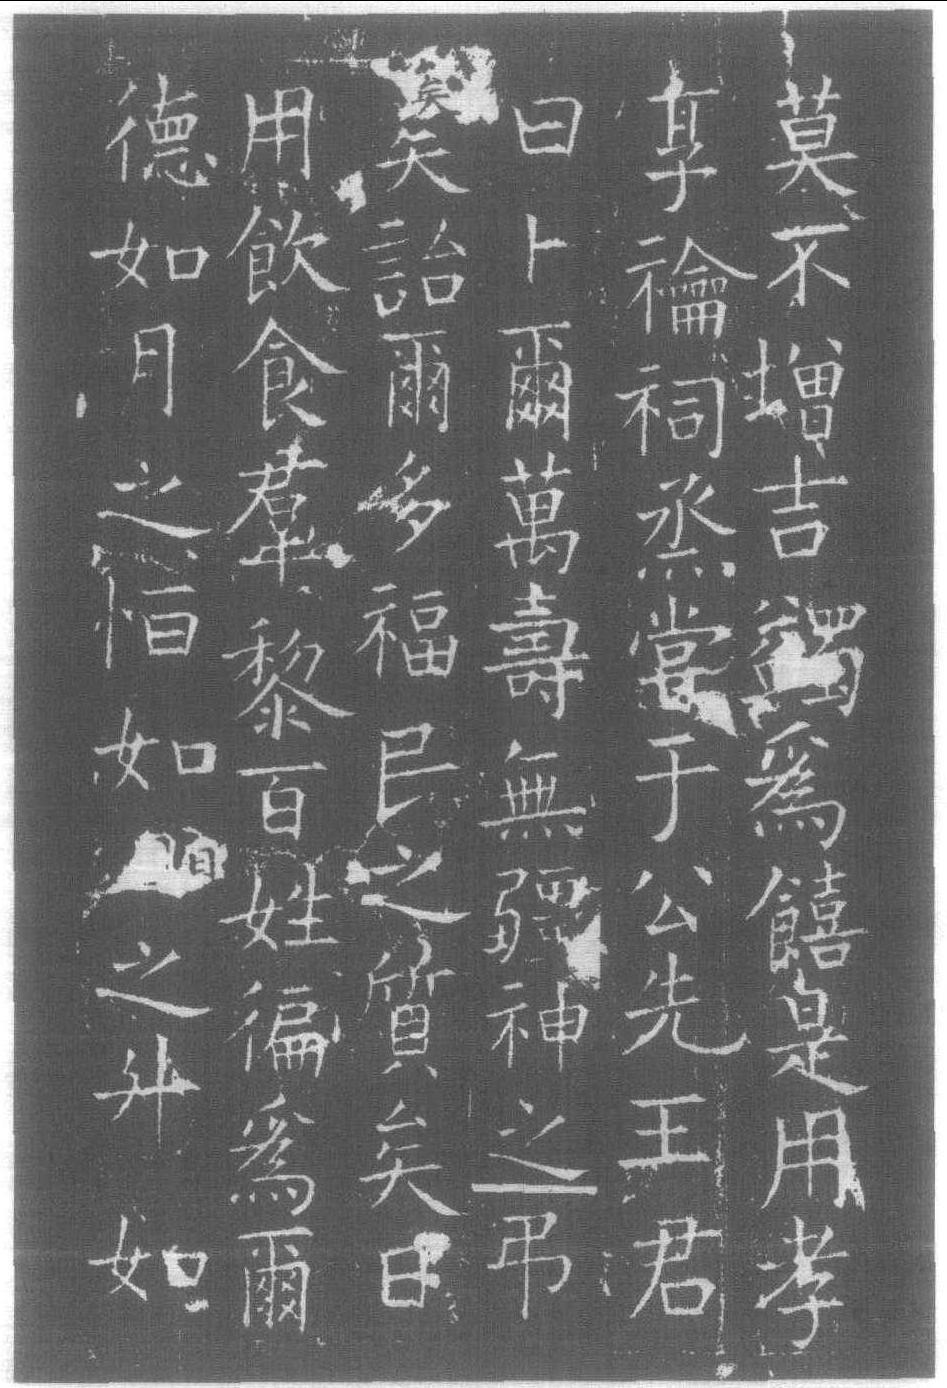 莫不增吉蠲為饎是用孝
享禴祠烝嘗于公先王君
曰卜爾萬壽無疆神之弔
矣詒爾多福民之質矣日
用飲食羣黎百姓徧為爾
德如月之恒如之升如